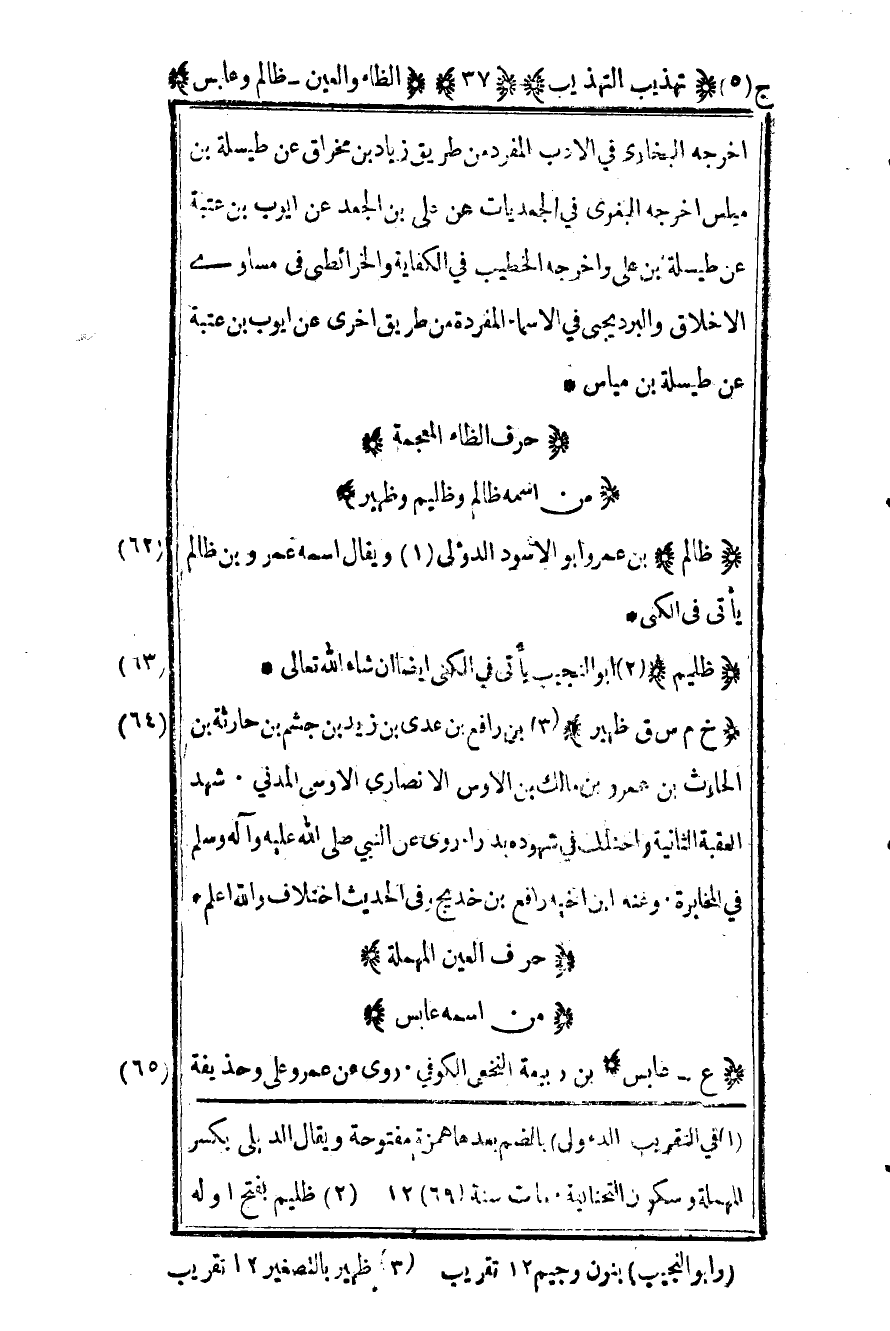 ج (٥) ﴿ تهذيب التهذيب ﴾ ﴿ ٣٧ ﴾ ﴿ الظاء والعين ـ ظالم وعابس ﴾
اخرجه البخارى في الادب المفرد من طريق زياد بن مخراق عن طيسلة بن
مياس اخرجه البغوى في الجعديات عن على بن الجعد عن ايوب بن عتبة
عن طيسلة بن على واخرجه الخطيب في الكفاية والخرائطى فى مساوے
الاخلاق والبرديجى في الاسماء المفردة من طريق اخرى عن ايوب بن عتبة
عن طيسلة بن مياس *
﴿ حرف الظاء المعجمة ﴾
﴿ من اسمه ظالم وظليم وظهير ﴾
﴿ ظالم ﴾ بن عمرو ابو الاسود الدؤلى (١) ويقال اسمه عمرو بن ظالم (٦٢)
يأتى فى الكنى *
﴿ ظليم ﴾ (٢) ابو النجيب يأتى في الكنى ايضا ان شاء الله تعالى * (٦٣)
﴿ خ م س ق ظهير ﴾ (٣) بن رافع بن عدى بن زيد بن جشم بن حارثة بن (٦٤)
الحارث بن عمرو بن مالك بن الاوس الانصارى الاوسى المدني . شهد
العقبة الثانية واختلف في شهوده بدرا . روى عن النبي صلى الله عليه وآله وسلم
في المخابرة . وعنه ابن اخيه رافع بن خديج . وفى الحديث اختلاف والله اعلم *
﴿ حرف العين المهملة ﴾
﴿ من اسمه عابس ﴾
﴿ ع ـ عابس ﴾ بن ربيعة النخعى الكوفي . روى عن عمرو على وحذيفة (٦٥)
(١) في التقريب (الدءولى) بالضم بعدها همزة مفتوحة ويقال الديلى بكسر
المهملة وسكون التحتانية . مات سنة (٦٩) ١٢ (٢) ظليم بفتح اوله
(وابو النجيب) بنون وجيم ١٢ تقريب (٣) ظهير بالتصغير ١٢ تقريب